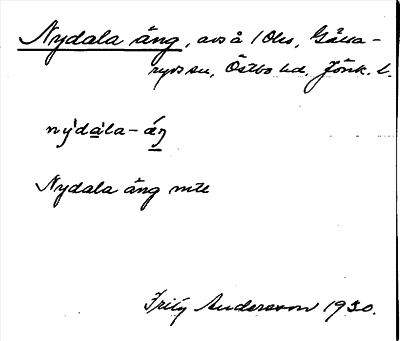 Nydala äng, avs å 1 Oln, Gåva-
ryds sn, Östbo hd, Jönk. l.
ny̍da̍la-áŋ
Nydala äng mte
Frity Andersson 1930.